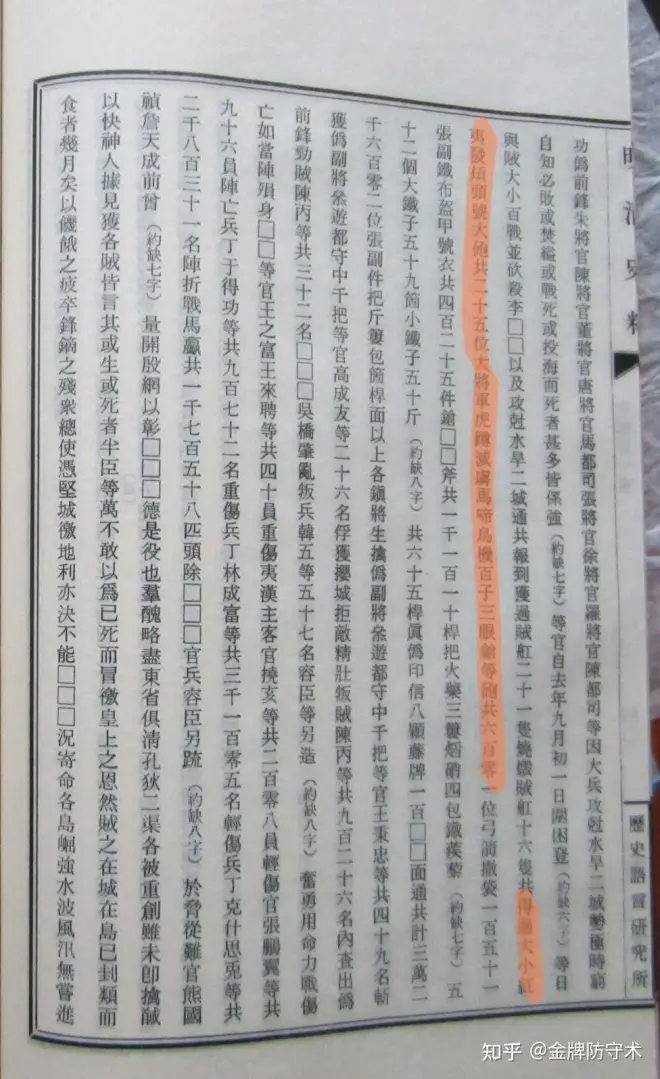 明清史料
歷史語言研究所
功僞前鋒朱將官陳將官董將官唐將官馬都司張將官徐將官羅將官陳都司等因大兵攻尅水旱二城勢極時窮
自知必敗或焚縊或戰死或投海而死者甚多皆係強(約缺七字)等官自去年九月初一日圍困登(約缺六字)等日
與賊大小百戰並砍殺李□□以及攻尅水旱二城通共報到獲過賊舡二十一隻燒燬賊舡十六隻共得過大小紅
夷發熕頭號大砲共二十五位大將軍虎蹲滅虜馬啼鳥機百子三眼鎗等砲共六百零一位弓箭撒袋一百五十一
張副鐵布盔甲號衣共四百二十五件鎗□□斧共一千一百一十桿把火藥三簍焰硝四包鐵蒺藜(約缺七字)五
十二個大鐵子五十九箇小鐵子五十斤(約缺八字)共六十五桿眞僞印信八顆藤牌一百□□面通共計三萬二
千六百零二位張副件把斤簍包箇桿面以上各鎭將生擒僞副將叅遊都守中千把等官王秉忠等共四十九名斬
獲僞副將叅遊都守中千把等官高成友等二十六名俘獲攖城拒敵精壯叛賊陳丙等共九百二十六名內查出僞
前鋒勁賊陳丙等共三十二名□□□吳橋肇亂叛兵韓五等五十七名容臣等另造(約缺八字)奮勇用命力戰傷
亡如當陣殞身□□等官王之富王來聘等共四十員重傷夷漢主客官撓亥等共二百零八員輕傷官張鵬翼等共
九十六員陣亡兵丁于得功等共九百七十二名重傷兵丁林成富等共三千一百零五名輕傷兵丁克什思兎等共
二千八百三十一名陣折戰馬驘共一千七百五十八匹頭除□□□官兵容臣另䟽(約缺八字)於脅從難官熊國
禎詹天成前曾(約缺七字)量開殷網以彰□□□德是役也羣醜略盡東省俱淸孔狄二渠各被重創雖未卽擒馘
以快神人據見獲各賊皆言其或生或死者半臣等萬不敢以爲已死而冒徼皇上之恩然賊之在城在島已刲類而
食者幾月矣以饑餓之疲卒鋒鏑之殘衆總使憑堅城徼地利亦決不能□□□況寄命各島崛強水波風汛無嘗進
知乎 @金牌防守术